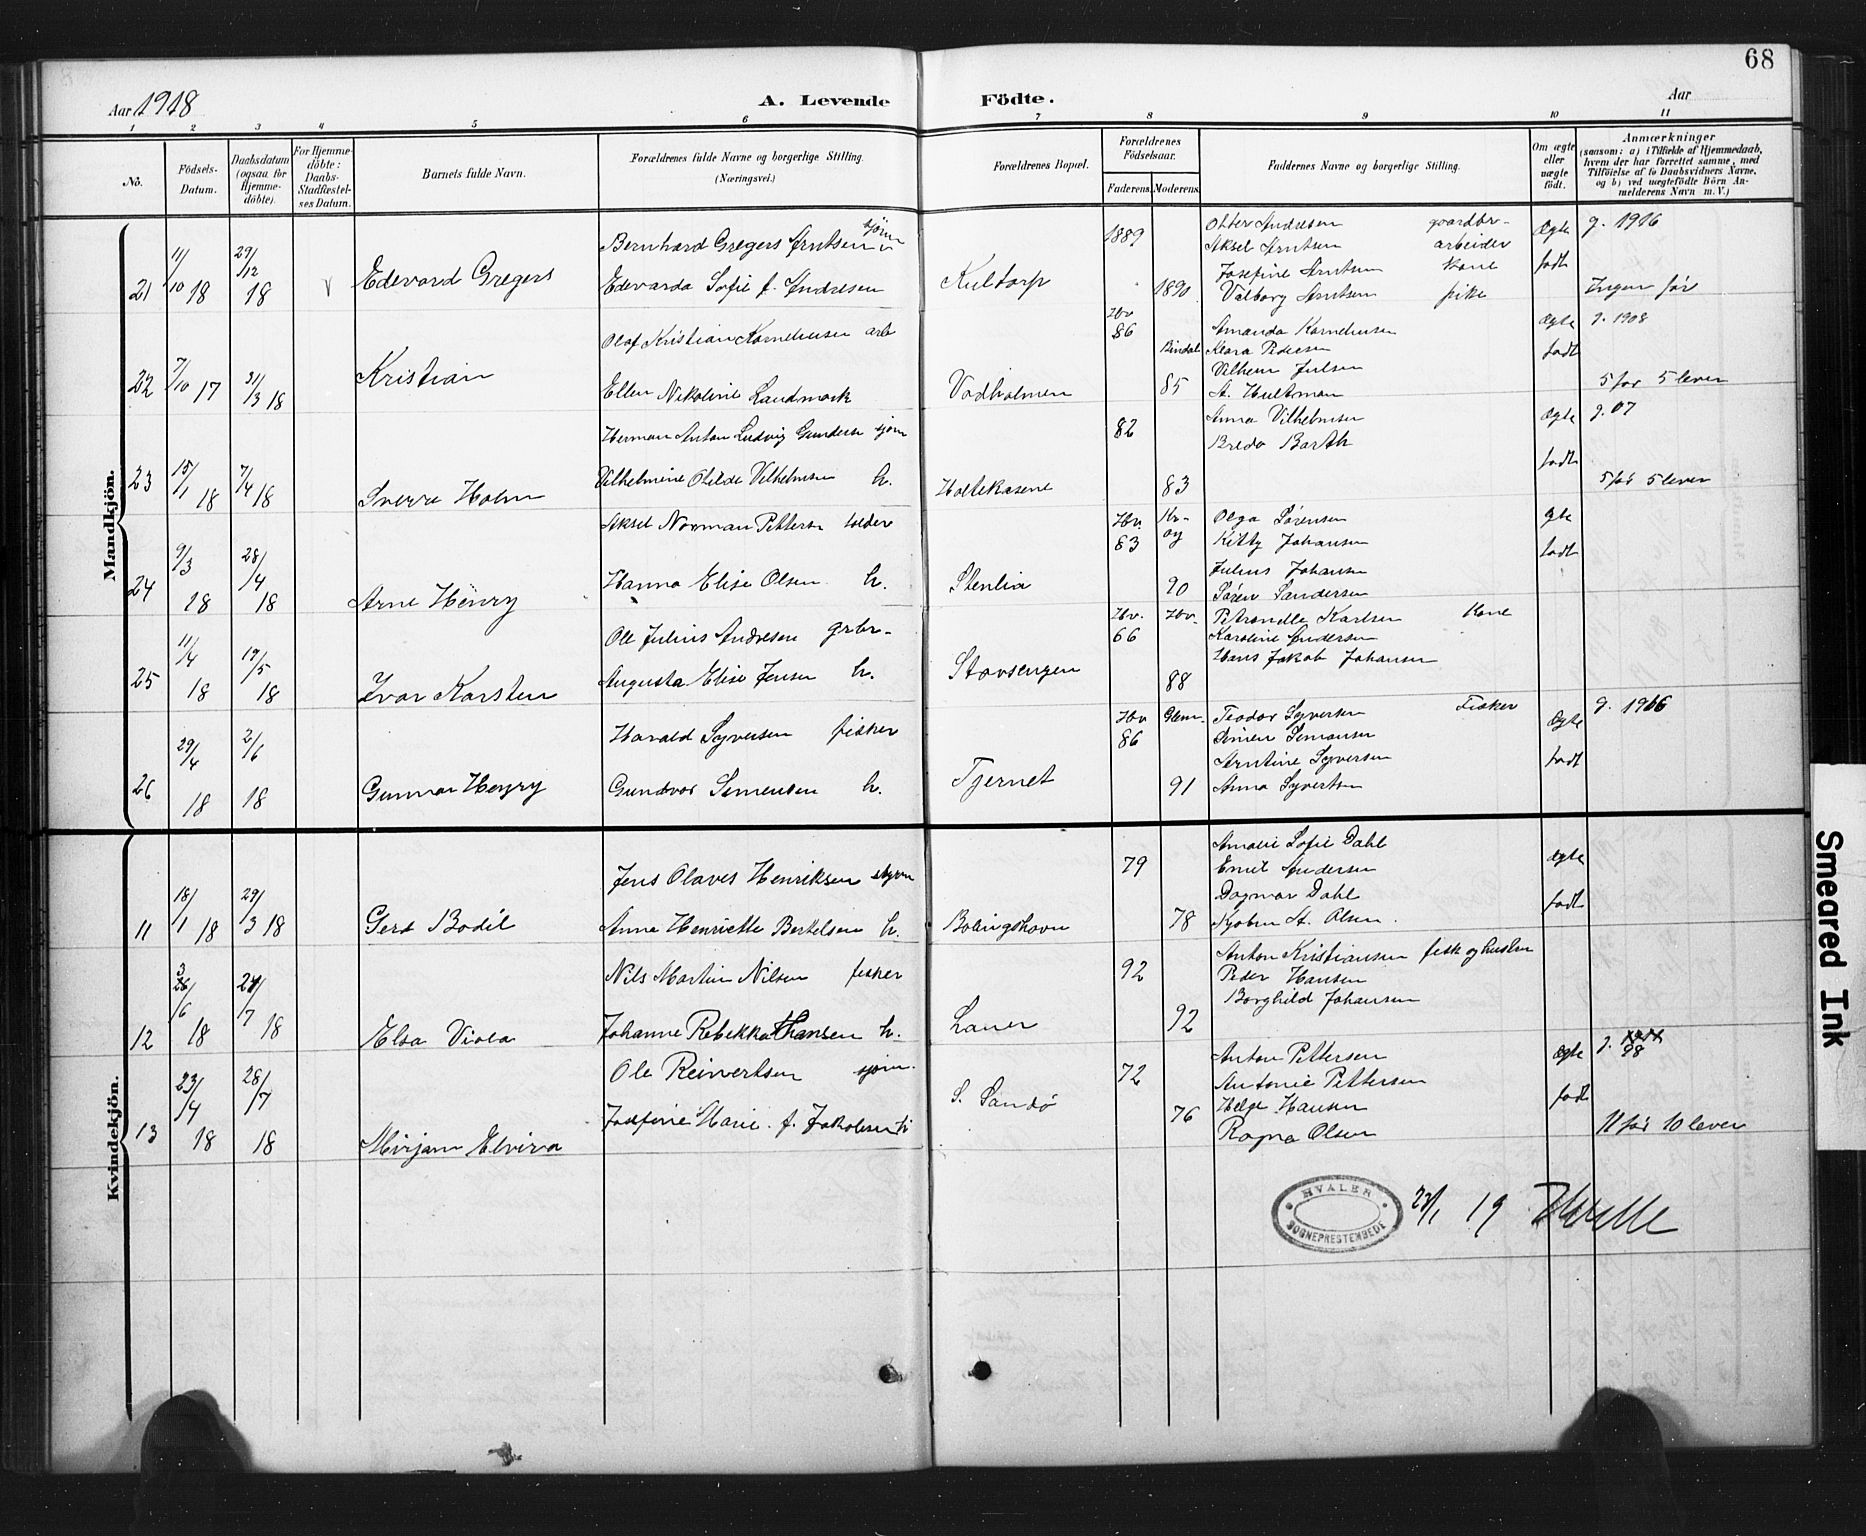 68
Aar 1918
A. Levende Födte.
Aar
1 2 3 4 5 6 7 8 9 10 11
No.
Födsels-Datum.
Daabsdatum (ogsaa for Hjemme-döbte).
For Hjemme-döbte: Daabs-Stadfæstel-ses Datum.
Barnets fulde Navn.
Forældrenes fulde Navne og borgerlige Stilling.
(Næringsvei.)
Forældrenes Bopæl.
Forældrenes Födselsaar.
Faderens. Moderens.
Faddernes Navne og borgerlige Stilling.
Om ægte eller uægte födt.
Anmærkninger
(saasom: a) i Tilfælde af Hjemmedaab,
hvem der har forrettet samme, med
Tilföielse af to Daabsvidners Navne,
og b) ved uægtefödte Börn An-
melderens Navn m. V.)
Mandkjön.
21 11/10 18 29/12 18 Edevard Gregers
Bernhard Gregers Arntsen sjöm
Edevarda Sofie f. Andresen
Kultorp 1889 1890
Otter Andresen gaardbr-
Aksel Arntsen arbeider
Josefine Arntsen Kone
Valborg Arntsen pike
Ægte født g. 1916
Ingen før
22 7/10 17 31/3 18 Kristian
Olaf Kristian Kornelius­sen arb
Ellen Nikoline Landmark
Vadholmen Hv 86 Bindal 85
Amanda Korneliussen
Klara Pedersen
Vilhem Juelsen
A. Hultman
Ægte født g. 1908
5 før 5 lever
23 15/1 18 7/4 18 Sverre Holm
Herman Anton Ludvig Gunders sjøm
Vilhelmine Otilde Vilhelmsen h.
Holtekasene 82 83
Anna Vilhelmsen
Breda Barth
Ægte født g. 07
5 før 5 lever
24 9/3 18 28/4 18 Arne Henry
Aksel Norman Petters tolder
Hanna Elise Olsen h.
Stenlia Hv. 83 90
Olga Sørensen
Kitty Johansen
Julius Johansen
Søren Sandersen
gte født
25 11/4 18 19/5 18 Ivar Karsten
Ole Julius Andresen grbr-
Augusta Elise Jensen h.
Stavsengen Hv. 66 Hv. 88
Petronelle Karlsen Kone
Karoline Andersen
Hans Jakob Johansen
26 29/4 18 2/6 18 Gunnar Henry
Harald Syversen fisker
Gundvor Simensen h.
Tjernet Hv 86 Glem. 91
Teodor Syversen Fisker
Simen Simensen
Arntine Syversen
Anna Syvertsen
Ægte født g. 1916
Kvindekjön.
11 18/1 18 29/3 18 Gerd Bodil
Jens Olaves Henriksen styrm
Anne Henriette Bertelsen h.
Bølingshavn 79 78
Amalie Sofie Dahl
Emil Andersen
Dagmar Dahl
Kjøbm A. Olsen.
ægte født
12 /6 18 /7 18 Elsa Viola
Nils Martin Nilsen fisker
Johanne Rebekka Hansen h.
Lauer 92 92
Anton Kristiansen fisk og hustru
Peder Hansen
Borghild Johansen
13 23/4 18 28/7 18 Mirjam Elvira
Ole Reinertsen sjøm.
Josefine Marie f. Jakobsen
S. Sandø 72 76
Anton Pettersen
Antonie Pettersen
Helge Hansen
Ragna Olsen
ægte født g. 98
11 før 10 lever
HVALER
SOGNEPRESTEMBEDE
23/1 19
Smeared Ink